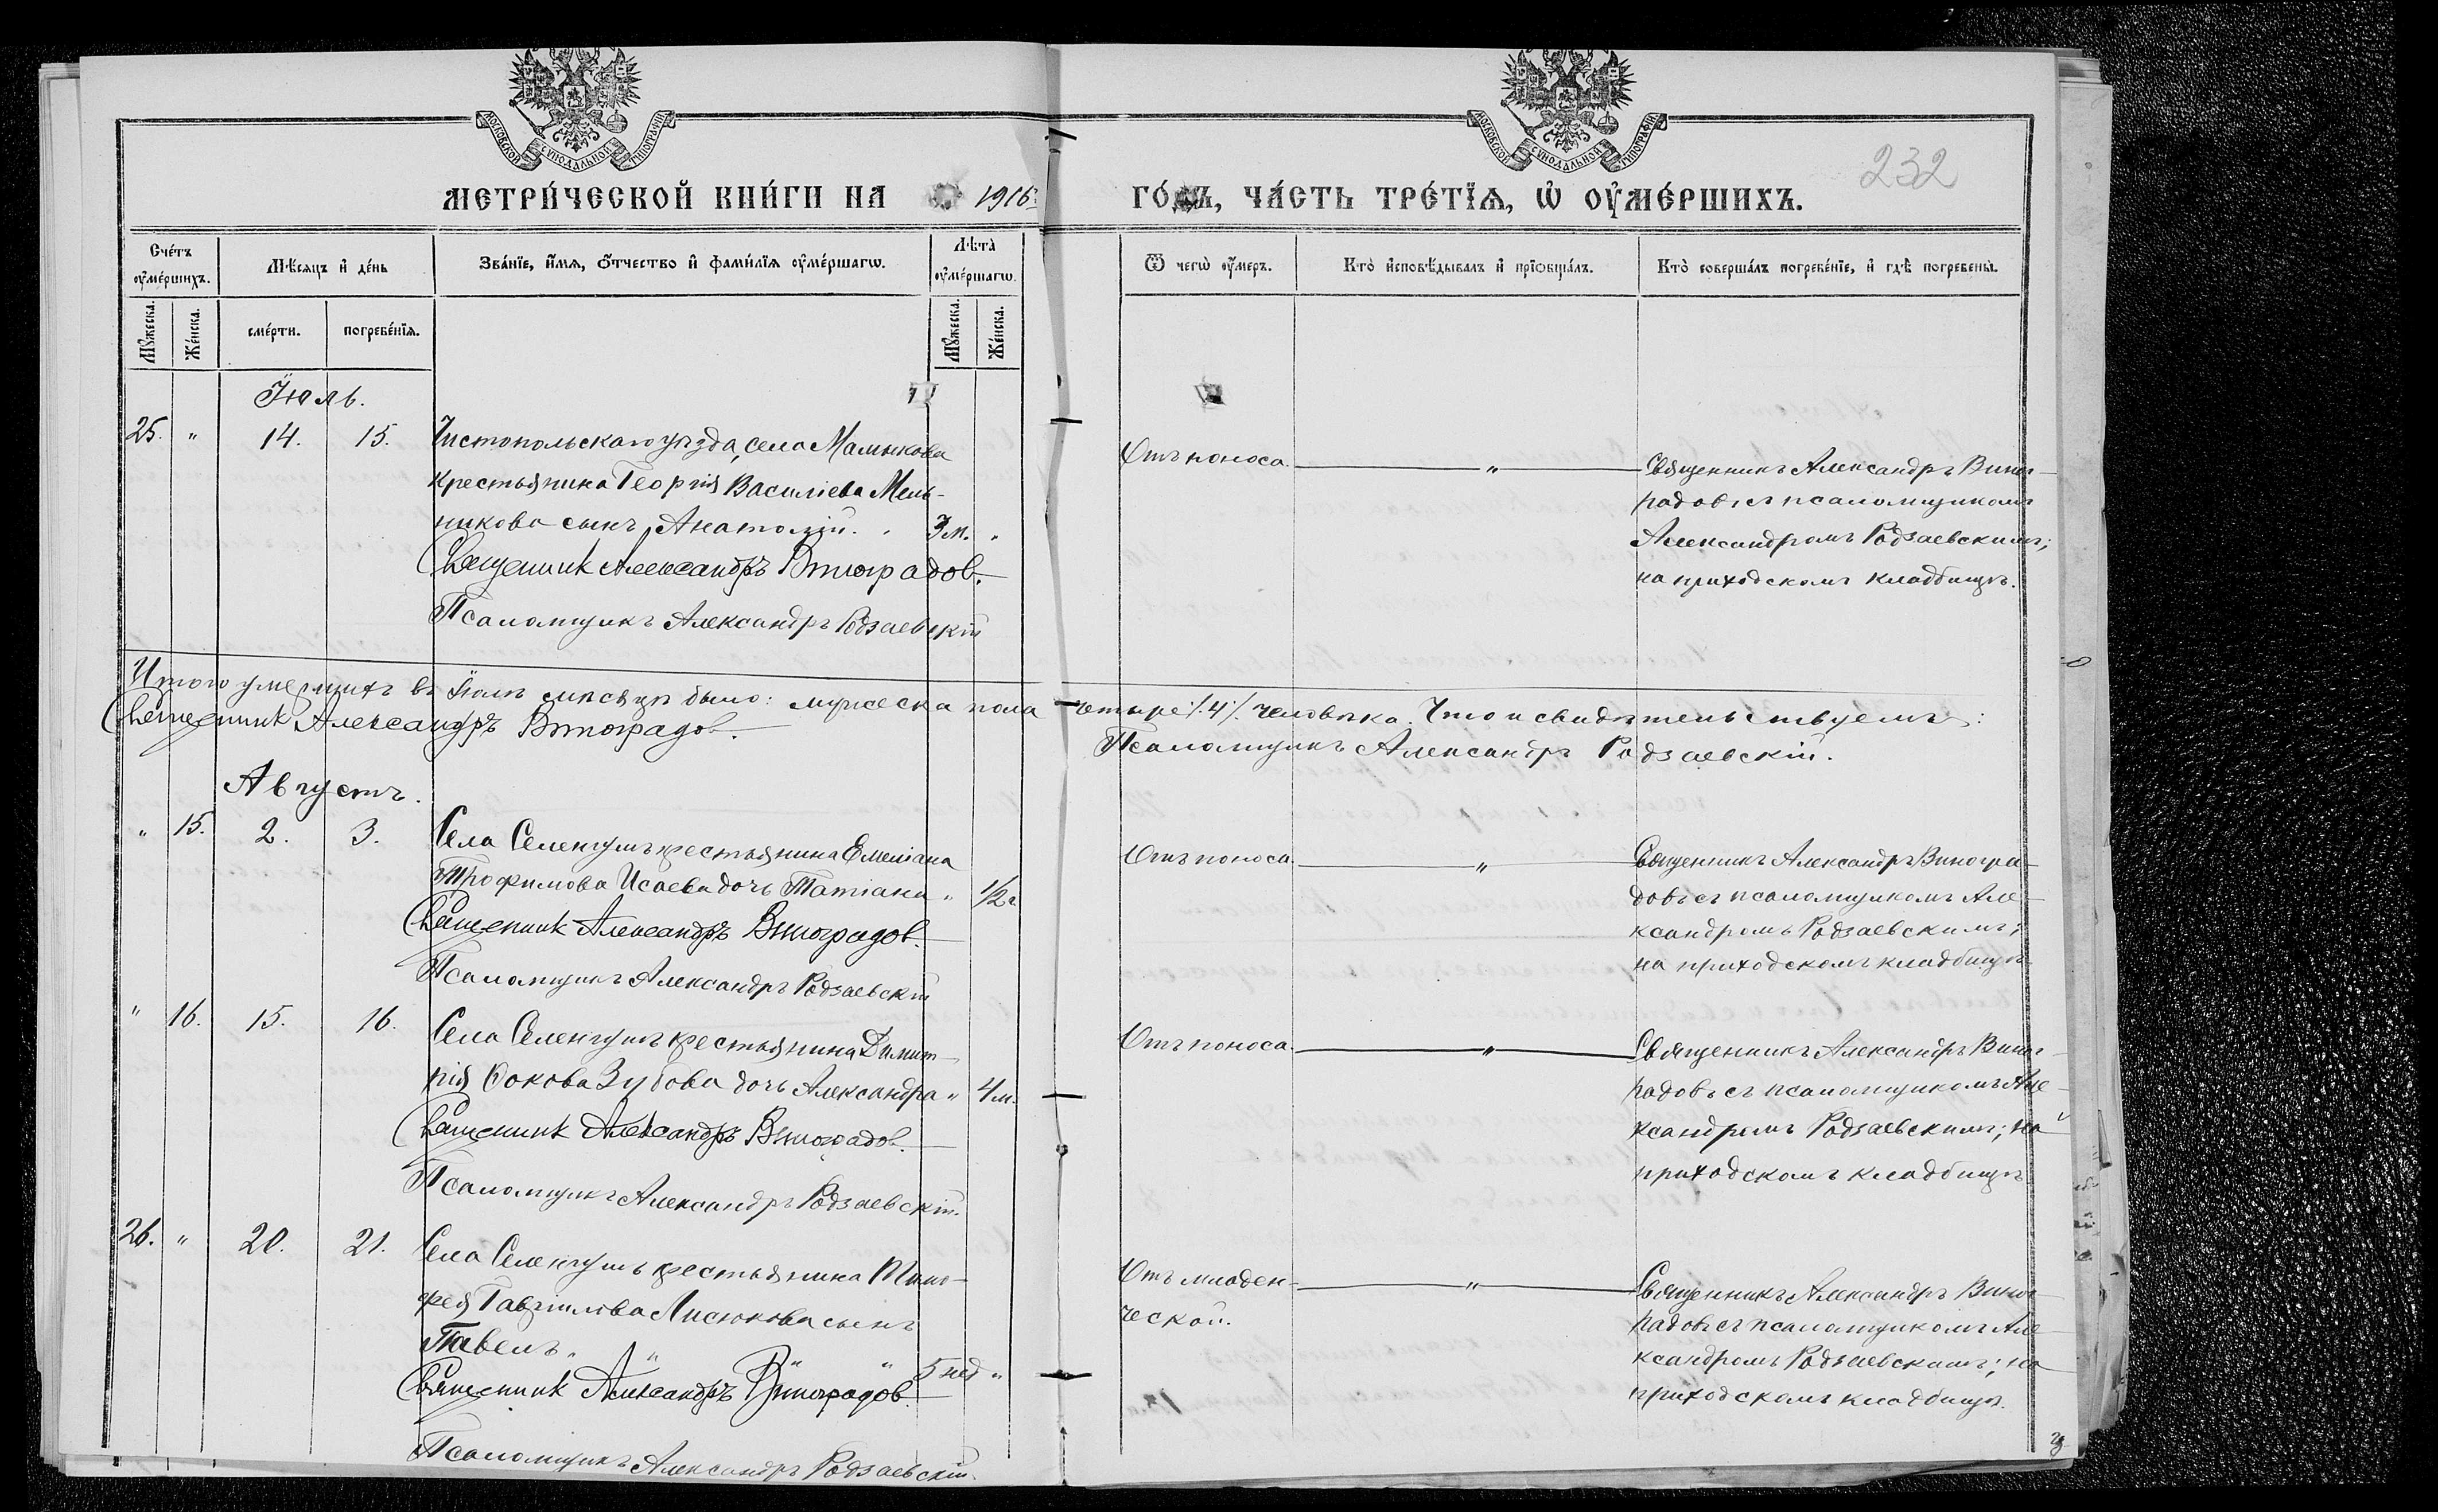 МОСКОВСКОЙ СѴНОДАЛЬНОЙ ТИПОГРАФІИ
МОСКОВСКОЙ СѴНОДАЛЬНОЙ ТИПОГРАФІИ
232
МЕТРИ́ЧЕСКОЙ КНИ́ГИ НА 1916 ГО́ДЪ, ЧА́СТЬ ТРЕ́ТЇѦ, Ѡ҆ ОУ҆МЕ́РШИХЪ.
Сче́тъ оу҆ме́ршихъ.
Мѣ́сяцъ и҆ де́нь
Зва́нїе, и҆́мѧ, ѻ҆́тчество и҆ фами́лїѧ оу҆ме́ршагѡ.
Лѣта̀ оу҆ме́ршагѡ.
Ѿ чегѡ̀ оу҆́меръ.
Кто̀ и҆сповѣ́дывалъ и҆ прїѡбща́лъ.
Кто̀ соверша́лъ погребе́нїе, и҆ гдѣ̀ погребены̀.
Мꙋ́жеска.
Же́нска.
сме́рти.
погребе́нїѧ.
Мꙋ́жеска.
Же́нска.
Іюль.
25. " 14. 15. Чистопольскаго уѣзда, села Малыкова
крестьянина Георгія Василіева Мель-
никова сынъ Анатолій. " 3 м. "
Священник Александръ Виноградов.
Псаломщикъ Александръ Родзаевскій
Отъ поноса. "
Священникъ Александръ Виног-
радовъ съ псаломщикомъ
Александромъ Родзаевскимъ;
на приходскомъ кладбищѣ.
Итого умершихъ въ Іюлѣ мѣсяцѣ было: мужеска пола четыре /.4/. человѣка. Что и свидѣтельствуемъ:
Священник Александръ Виноградов.
Псаломщикъ Александръ Родзаевскій.
Августъ.
" 15. 2. 3. Села Селенгушъ крестьянина Емеліана
Трофимова Исаева дочь Татіана " 1/2 г
Священник Александръ Виноградов.
Псаломщикъ Александръ Родзаевскій
Отъ поноса. "
Священникъ Александръ Виногра-
довъ съ псаломщикомъ Але-
ксандромъ Родзаевскимъ;
на приходскомъ кладбищѣ
" 16. 15. 16. Села Селенгушъ крестьянина Димит-
рія Фокова Зубова дочь Александра " 4 м.
Священник Александръ Виноградов.
Псаломщикъ Александръ Родзаевскій.
Отъ поноса. "
Священникъ Александръ Виног-
радовъ съ псаломщикомъ Але-
ксандромъ Родзаевскимъ; на
приходскомъ кладбищѣ
26. " 20. 21. Села Селенгушъ крестьянина Тимо-
фея Гавріилова Лисюкова сынъ
Павелъ. " " " 5 нед "
Священник Александръ Виноградов.
Псаломщикъ Александръ Родзаевскій.
Отъ младен-
ческой. "
Священникъ Александръ Виног-
радовъ съ псаломщикомъ Але-
ксандромъ Родзаевскимъ; на
приходскомъ кладбищѣ.